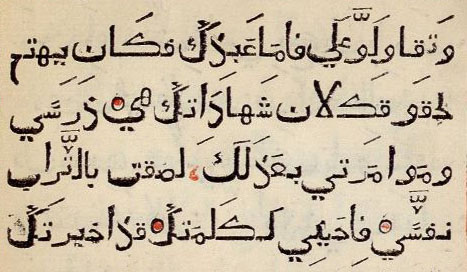 وتقاولو علي فاما عبدك فكان يهتم
بحقوقك لان شهاداتك هي درسي
وموامرتي بعدلك لصقت بالتراب
نفسي فاحيني ككلمتك قد اخبرتك